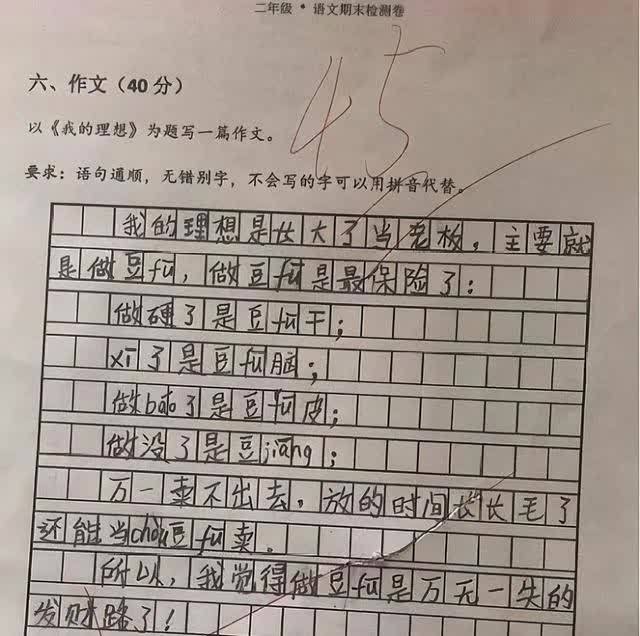 二年级 * 语文期末检测卷
45
六、作文(40 分)
以《我的理想》为题写一篇作文。
要求:语句通顺,无错别字,不会写的字可以用拼音代替。
我的理想是长大了当老板,主要就
是做豆fǔ,做豆fǔ是最保险了:
做硬了是豆fǔ干;
xī了是豆fǔ脑;
做báo了是豆fǔ皮;
做没了是豆jiāng;
万一卖不出去,放的时间长长毛了
还能当chòu豆fǔ卖。
所以,我觉得做豆fǔ是万无一失的
发财路了!